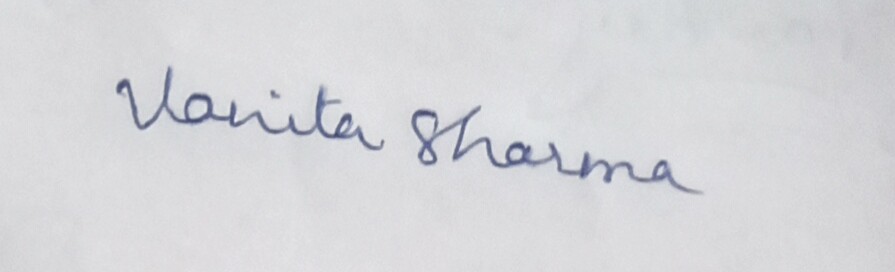 Vanita Sharma